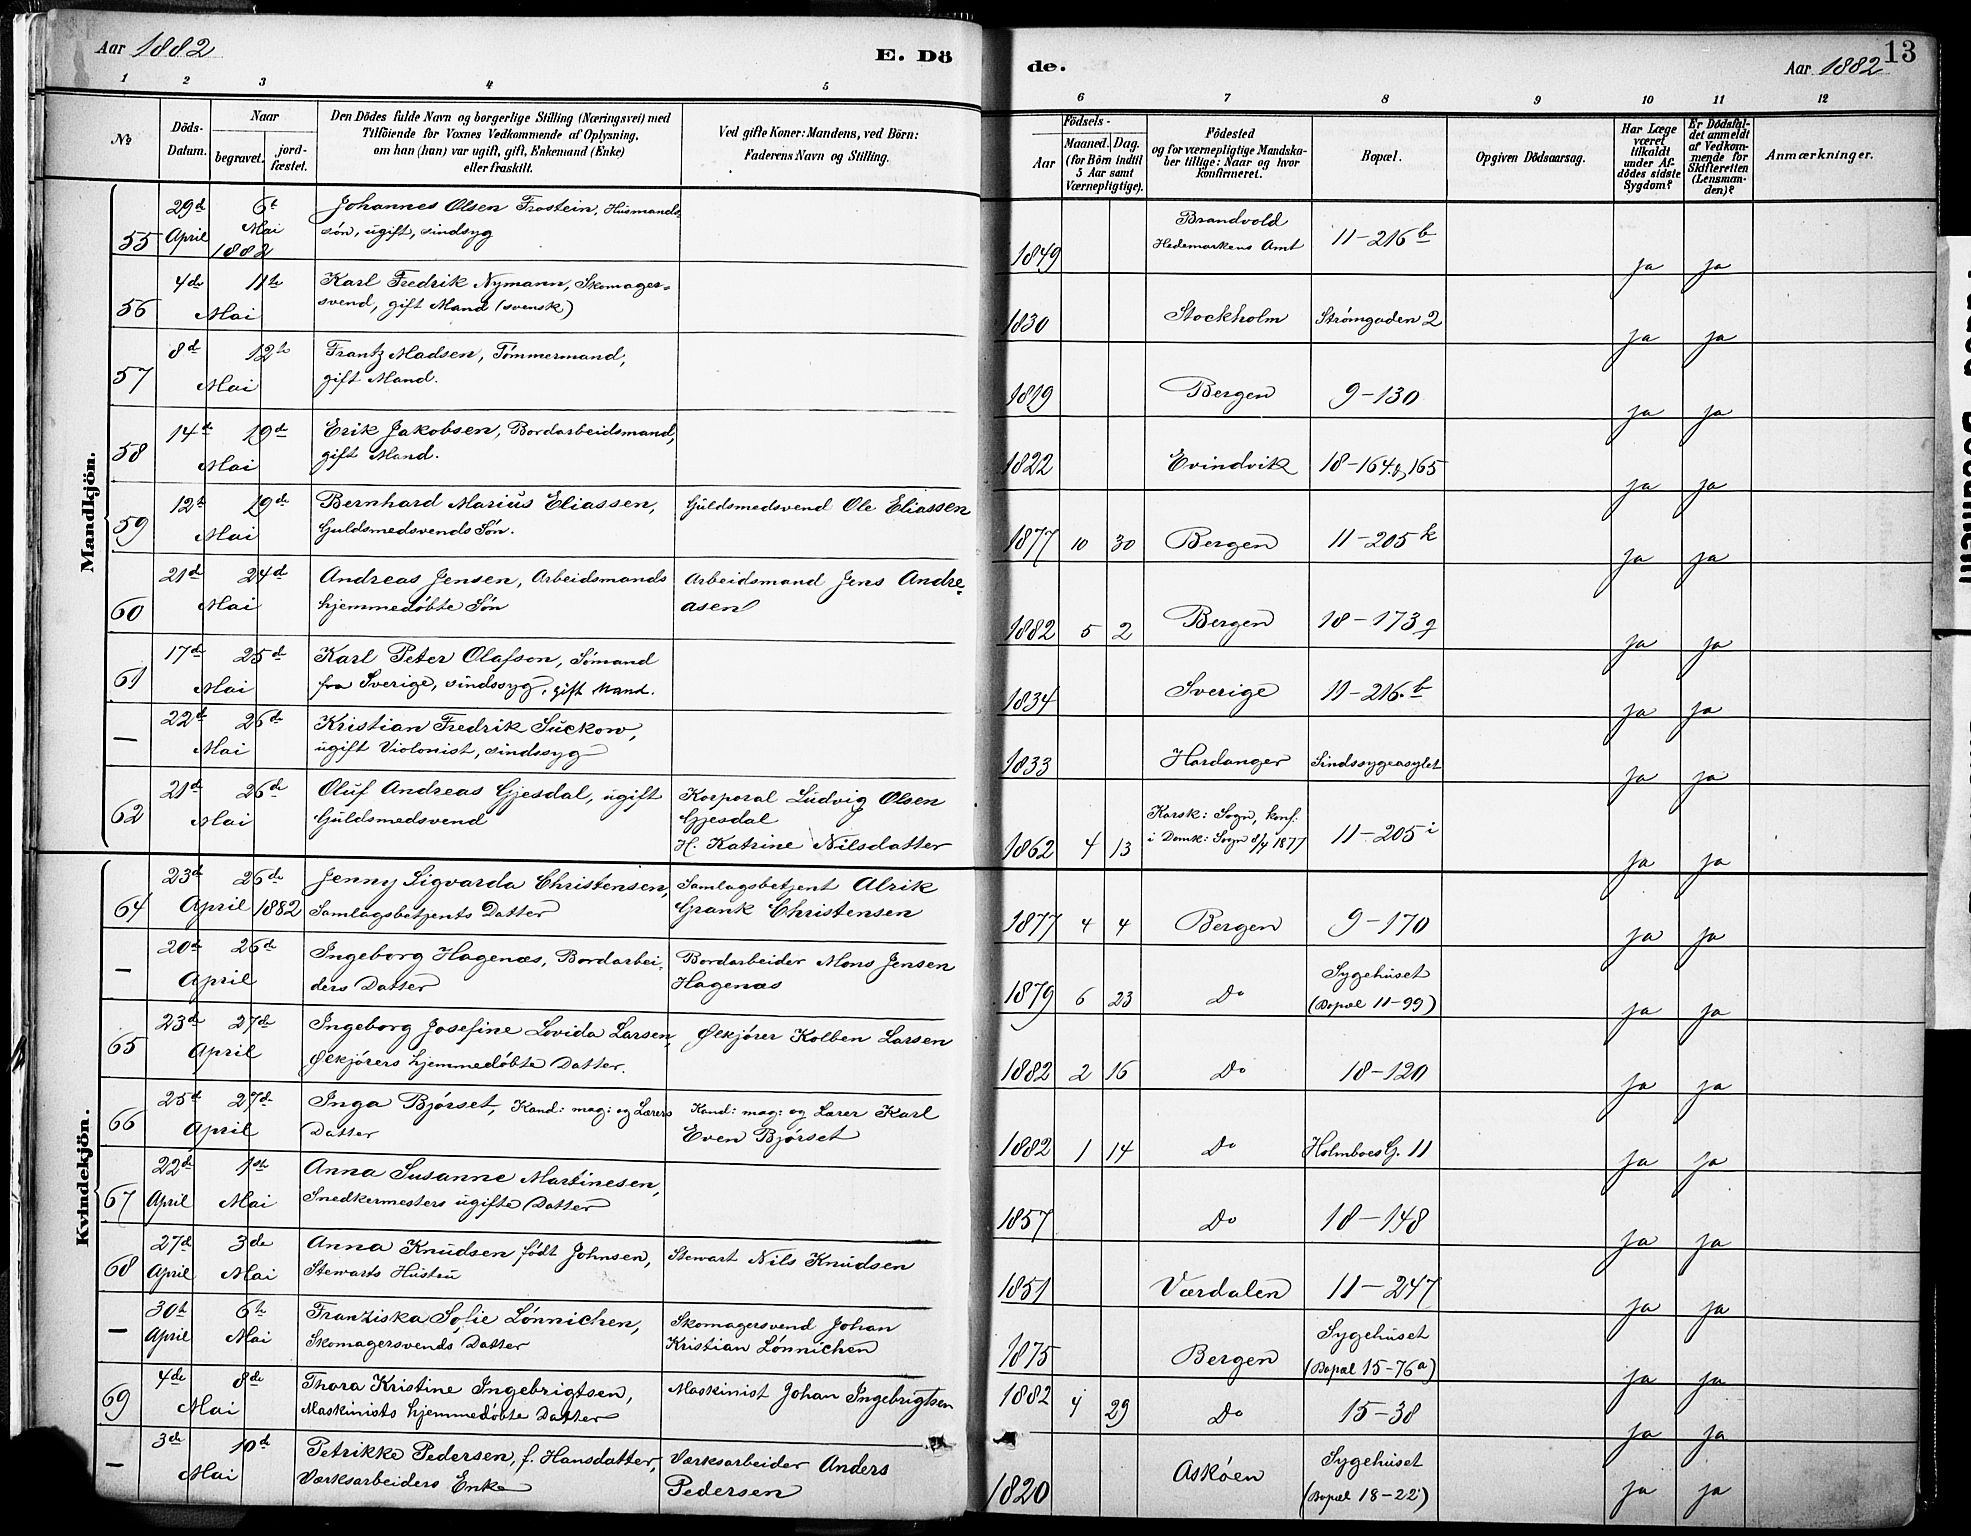 Aar 1882
E. Dö
de.
Aar 1882
13
1 2 3 4 5 6 7 8 9 10 11 12
No
Döds-Datum.
Naar
begravet.
jord-fæstet.
Den Dödes fulde Navn og borgerlige Stilling (Næringsvei) med
Tilföiende for Voxnes Vedkommende af Oplysning,
om han (hun) var ugift, gift, Enkemand (Enke)
eller fraskilt.
Ved gifte Koner: Mandens, ved Börn:
Faderens Navn og Stilling.
Födsels-
Aar
Maaned. Dag.
(for Börn indtil
5 Aar samt
Værnepligtige).
Födested
og for værnepligtige Mandska-
ber tillige: Naar og hvor
konfirmeret.
Bopæl.
Opgiven Dödsaarsag.
Har Læge
været
tilkaldt
under Af-
dödes sidste
Sygdom?
Er Dödsfal-
det anmeldt
af Vedkom-
mende for
Skifteretten
(Lensman-
den)?
Anmærkninger.
Mandkjön.
55 29d April 6t Mai 1882 Johannes Olsen Frostein, Husmands-
søn, ugift, sindsyg
1849 Brandvold Hedemarkens Amt 11-216 b Ja Ja
56 4de 11te Mai Karl Fredrik Nymann, Skomager-
svend, gift Mand (svensk)
1830 Stockholm Strømgaden 2 Ja Ja
57 8d 12te Mai Frantz Madsen, Tømmermand,
gift Mand.
1819 Bergen 9-130 Ja Ja
58 14de 19de Mai Erik Jakobsen, Bordarbeidsmand,
gift Mand.
1822 Evindvik 18-164 & 165 Ja Ja
59 12t 19de Mai Bernhard Marius Eliassen, Guldsmedsvend Ole Eliassen
Guldsmedsvends Søn.
1877 10 30 Bergen 11-205 k Ja Ja
60 21d 24d Mai Andreas Jensen, Arbeidsmands Arbeidsmand Jens Andre-
hjemmedøbte Søn asen
1882 5 2 Bergen 18-173 g Ja Ja
61 17d 25d Mai Karl Peter Olafson, Sømand
fra Sverige, sindssyg, gift Mand.
1834 Sverige 11-216. b Ja Ja
— 22d 26d Mai Kristian Fredrik Suckow,
ugift Violonist, sindssyg
1833 Hardanger Sindssygeasylet Ja Ja
62 21d 26de Mai Oluf Andreas Gjesdal, ugift Korporal Ludvig Olsen
Guldsmedsvend Gjesdal
H. Katrine Nilsdatter
1862 4 13 Korsk: Sogn, konf.
i Domk: Sogn 8/4 1877 11-205 i Ja Ja
Kvindekjön.
64 23d 26de April 1882 Jenny Sigvarda Christensen, Samlagsbetjent Alrik
Samlagsbetjents Datter Grank Christensen
1877 4 4 Bergen 9-170 Ja Ja
— 20d 26d April Ingeborg Hagenæs, Bordarbei- Bordarbeider Mons Jensen
ders Datter Hagenæs
1879 6 23 Do Sygehuset
(Bopæl 11-99) Ja Ja
65 23d 27de April Ingeborg Josefine Lovida Larsen, Ølkjører Kolben Larsen
Ølkjørers hjemmedøbte Datter.
1882 2 16 Do 18-120 Ja Ja
66 25d 27de April Inga Bjørset, Kand: mag: og Lærers Kand: mag: og Lærer Karl
Datter Even Bjørset
1882 1 14 Do Holmboes G. 11 Ja Ja
67 22de April 1ste Mai Anna Susanne Martinesen,
Snedkermesters ugifte Datter
1857 Do 18-148 Ja Ja
68 27d April 3de Mai Anna Knudsen født Johnsen, Stewart Nils Knudsen
Stewarts Hustru
1851 Værdalen 11-247 Ja Ja
— 30t April 6te Mai Franziska Sofie Lønnichen, Skomagersvend Johan
Skomagersvends Datter Kristian Lønnichen
1875 Bergen Sygehuset
(Bopæl 15-76a) Ja Ja
69 4de 8de Mai Thora Kristine Ingebrigtsen, Maskinist Johan Ingebrigtsen
Maskinists hjemmedøbte Datter
1882 4 29 Do 15-38 Ja Ja
— 3de 10d Mai Petrikke Pedersen, f. Hansdatter, Værksarbeider Anders
Værksarbeiders Enke Pedersen
1820 Askøen Sygehuset
(Bopæl 18-22) Ja Ja